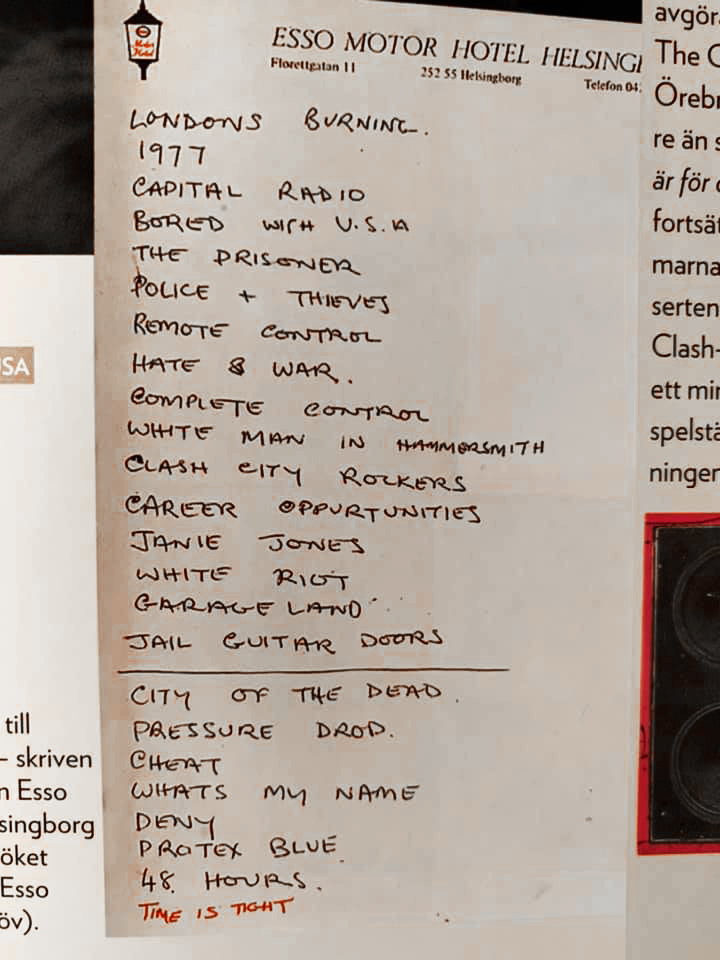 Esso
Motor
Hotel
ESSO MOTOR HOTEL HELSING
Florettgatan 11 252 55 Helsingborg Telefon 04
LONDONS BURNING.
1977
CAPITAL RADIO
BORED WITH U.S.A
THE PRISONER
POLICE + THIEVES
REMOTE CONTROL
HATE & WAR.
COMPLETE CONTROL
WHITE MAN IN HAMMERSMITH
CLASH CITY ROCKERS
CAREER OPPURTUNITIES
JANIE JONES
WHITE RIOT
GARAGE LAND
JAIL GUITAR DOORS
CITY OF THE DEAD.
PRESSURE DROP.
CHEAT
WHATS MY NAME
DENY
PROTEX BLUE
48 HOURS.
TIME IS TIGHT
USA
till
– skriven
n Esso
singborg
öket
Esso
öv).
avgör
The C
Örebr
re än s
är för
fortsät
marna
serten
Clash-
ett min
spelstä
ningen